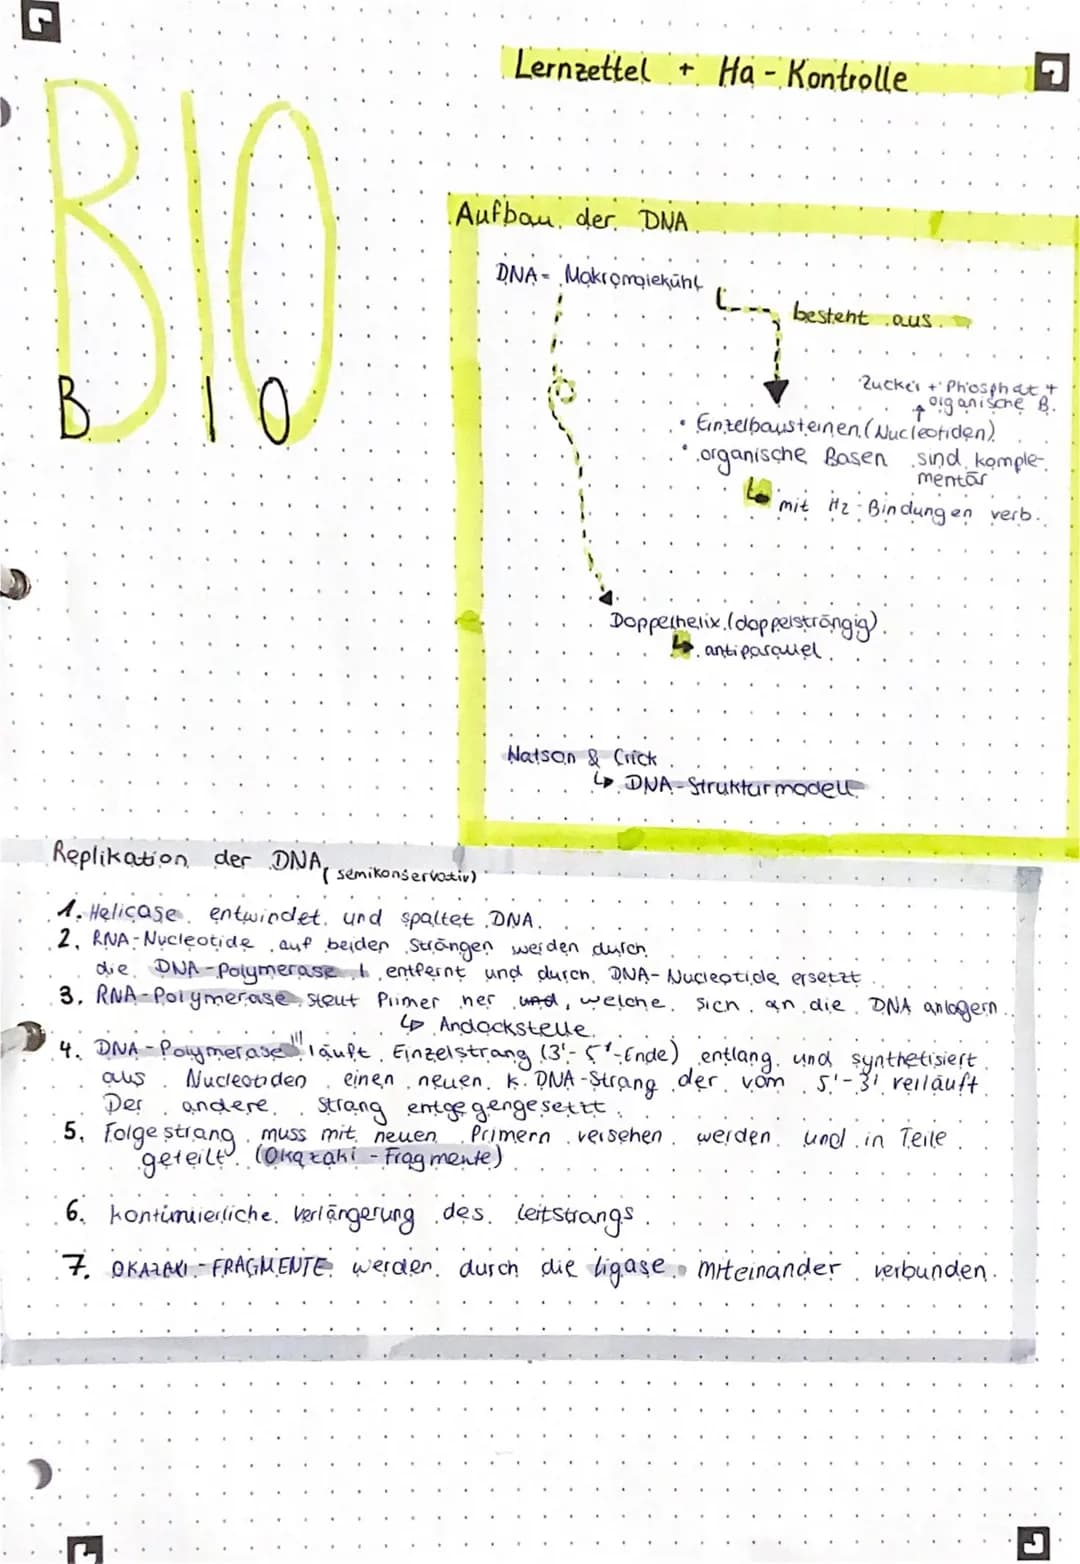 Lernzettel + Ha-Kontrolle
BIO
B I O
Aufbau der DNA
DNA = Makromolekühl
besteht aus
Zucker + Phosphat +
organische B.
• Einzelbausteinen (Nucleotiden)
• organische Basen sind komple-
mentär
↳ mit H2-Bindungen verb.
Doppelhelix (doppelsträngig)
↳ antiparallel
Watson & Crick
↳ DNA-Strukturmodell
Replikation der DNA (semikonservativ)
1. Helicase entwindet und spaltet DNA.
2. RNA-Nucleotide auf beiden Strängen werden durch
die DNA-Polymerase I entfernt und durch DNA-Nucleotide ersetzt.
3. RNA-Polymerase stellt Primer her und, welche sich an die DNA anlagern.
↳ Andockstelle
4. DNA-Polymerase III läuft Einzelstrang (3'-5'-Ende) entlang und synthetisiert
aus Nucleotiden einen neuen k. DNA-Strang der vom 5'-3' verläuft.
Der andere Strang entgegengesetzt.
5. Folgestrang muss mit neuen Primern versehen werden und in Teile
geteilt. (Okazaki-Fragmente)
6. kontinuierliche Verlängerung des Leitstrangs.
7. OKAZAKI-FRAGMENTE werden durch die Ligase miteinander verbunden.